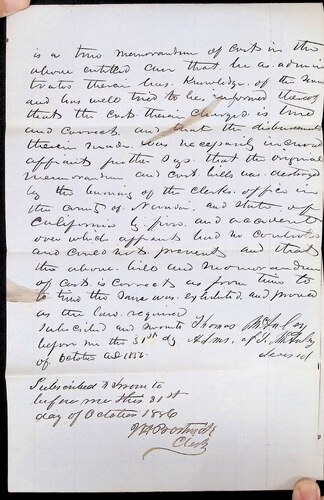 is a true memorandum of Costs in the
above entitled case that he as admin
trator therein has Knowledge of the same
and has well tried to be informed thereof
that the Costs therein Charged is true
and correct and that the disbursements
therein made was necessarily incurred
affiant further says that the original
memorandum and Cost bills was destroyed
by the burning of the Clerks office in
the County of and State of
California by fire and accident
over which affiant had no control
and could not prevent and that
the above bill and memorandum
of Costs is correct as from time to
to time the same was and proved
as the law required
Subscribed and sworn to Thomas
before me this 31st day Adms. of
of October AD 188 deceased
Subscribed & Sworn to
before me this 31st
day of October 1886
Clerk